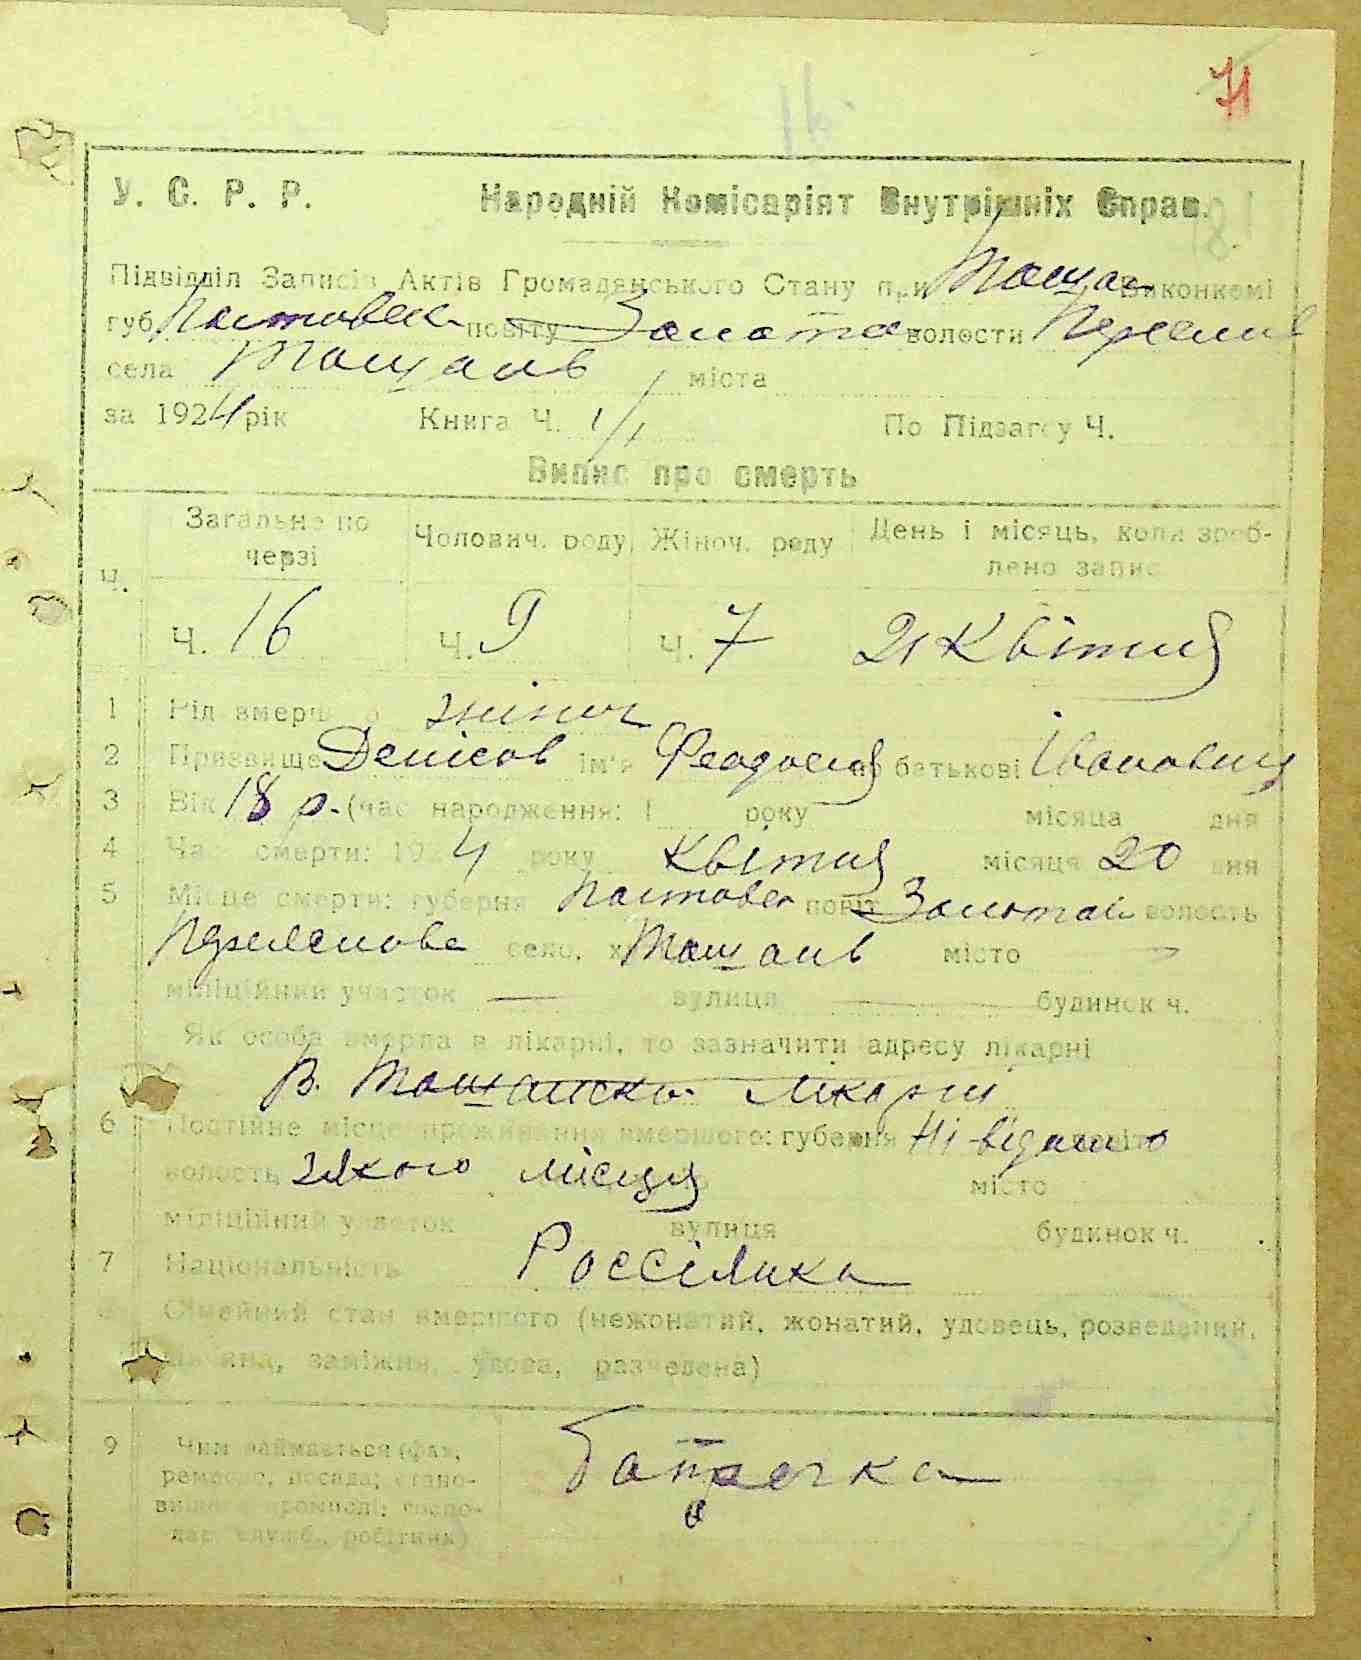 71
16
У. С. Р. Р. Народній Комісаріят Внутрішніх Справ.
Підвідділ Записів Актів Громадянського Стану при Ташан Виконкомі
губ. Полтавськ повіту Золотон волости Переяслів
села Ташань міста
за 1924 рік Книга Ч. 1/1 По Підзагсу Ч.
Випис про смерть
Ч. Загальне по черзі Чолович. роду Жіноч. роду День і місяць, коли зроб-
лено запис
Ч. 16 Ч. 9 Ч. 7 21 Квітня
1 Рід вмершого жіноч
2 Призвище Денісов ім'я Феодосія по батькові Івановна
3 Вік 18 р. (час народження: 1 року місяца дня
4 Час смерти: 1924 року Квітня місяця 20 дня
5 Місце смерти: губерня Полтавск повіт волость
село, х. Ташань місто
міліційний участок вулиця будинок ч.
Як особа вмерла в лікарні, то зазначити адресу лікарні
В. Ташанско лікарні
6 Постійне місце проживання вмершого: губерня Ні відомо повіт
волость з якого місця місто
міліційний участок вулиця будинок ч.
7 Національність Россіянка
8 Сімейний стан вмершого (нежонатий, жонатий, удовець, розведений,
дівчина, заміжня, удова, разведена)
9 Чим займається (фах,
ремесло, посада; стано-
вище в промислі: госпо-
дар, служб., робітник)
батрачка